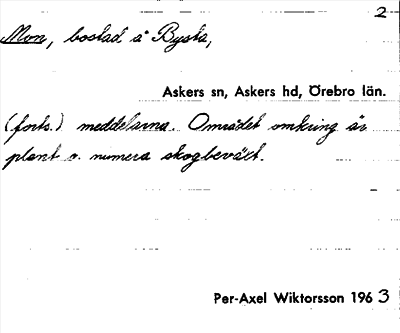 2
Mon, bostad å Bysta,
Askers sn, Askers hd, Örebro län.
(forts.) meddelarna. Området omkring är
plant o. numera skogbeväxt.
Per-Axel Wiktorsson 1963